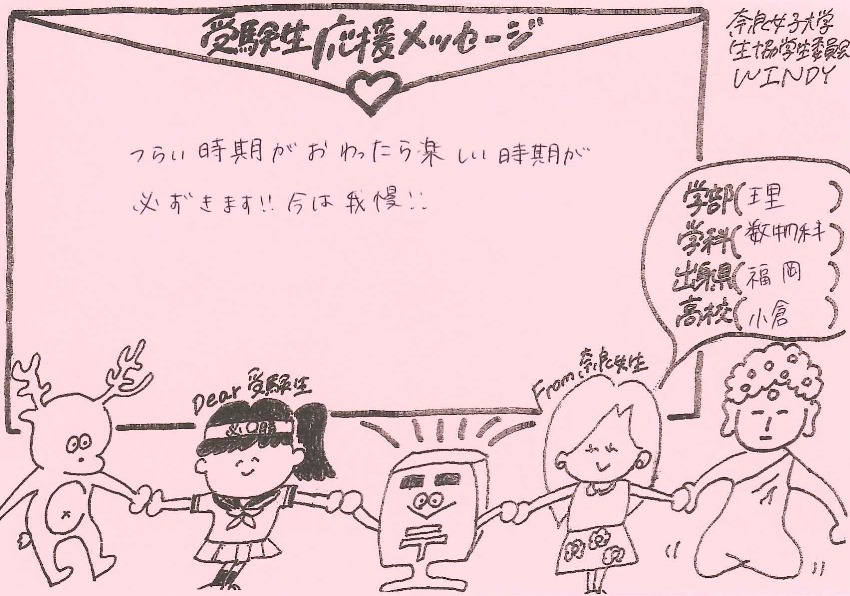 受験生応援メッセージ
奈良女子大学
生協学生委員会
WINDY
つらい時期がおわったら楽しい時期が
必ずきます!! 今は我慢!!
学部(理)
学科(数物科)
出身県(福岡)
高校(小倉)
Dear 受験生
From 奈良女生
必勝
〒